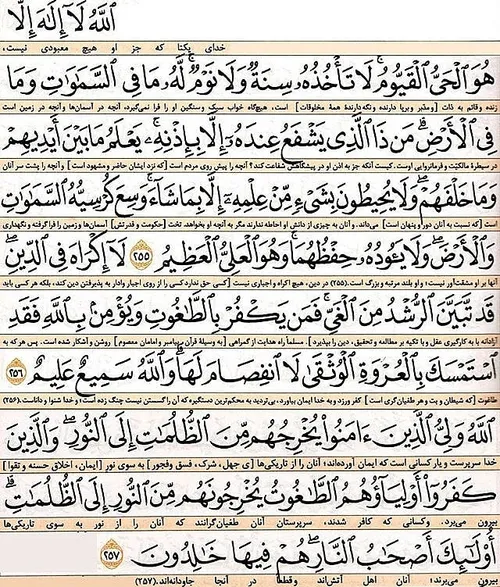 ٱللَّهُ لَآ إِلَٰهَ إِلَّا
خدای یکتا که جز او هیچ معبودی نیست،
هُوَ ٱلْحَىُّ ٱلْقَيُّومُ ۚ لَا تَأْخُذُهُۥ سِنَةٌ وَلَا نَوْمٌ ۚ لَّهُۥ مَا فِى ٱلسَّمَٰوَٰتِ وَمَا
زنده و قائم به ذات [و مدبر و برپا دارنده و نگه دارندهٔ همهٔ مخلوقات] است، هیچ‌گاه خواب سبک و سنگین او را فرا نمی‌گیرد، آنچه در آسمان‌ها و آنچه در زمین است
فِى ٱلْأَرْضِ ۗ مَن ذَا ٱلَّذِى يَشْفَعُ عِندَهُۥٓ إِلَّا بِإِذْنِهِۦ ۚ يَعْلَمُ مَا بَيْنَ أَيْدِيهِمْ
در سیطرهٔ مالکیّت و فرمانروایی اوست. کیست آنکه جز به اذن او در پیشگاهش شفاعت کند؟ آنچه را پیش روی مردم است [که نزد ایشان حاضر و مشهود است] و آنچه را پشت سر آنان
وَمَا خَلْفَهُمْ ۖ وَلَا يُحِيطُونَ بِشَىْءٍ مِّنْ عِلْمِهِۦٓ إِلَّا بِمَا شَآءَ ۚ وَسِعَ كُرْسِيُّهُ ٱلسَّمَٰوَٰتِ
است [که نسبت به آنان دور و پنهان است] می‌داند. و آنان به چیزی از دانش او احاطه ندارند مگر به آنچه او بخواهد. تخت [حکومت و قدرتش] آسمان‌ها و زمین را فرا گرفته و نگهداری
وَٱلْأَرْضَ ۖ وَلَا يَـُٔودُهُۥ حِفْظُهُمَا ۚ وَهُوَ ٱلْعَلِىُّ ٱلْعَظِيمُ ﴿٢٥٥﴾ لَآ إِكْرَاهَ فِى ٱلدِّينِ ۖ
آنها بر او مشقّت‌آور نیست؛ و او بلند مرتبه و بزرگ است. (۲۵۵) در دین، هیچ اکراه و اجباری نیست [کسی حق ندارد کسی را از روی اجبار وادار به پذیرفتن دین کند، بلکه هر کسی باید
قَد تَّبَيَّنَ ٱلرُّشْدُ مِنَ ٱلْغَىِّ ۚ فَمَن يَكْفُرْ بِٱلطَّٰغُوتِ وَيُؤْمِنۢ بِٱللَّهِ فَقَدِ
آزادانه با به کارگیری عقل و با تکیه بر مطالعه و تحقیق، دین را بپذیرد]. مسلماً راه هدایت از گمراهی [به وسیلهٔ قرآن، پیامبر و امامان معصوم] روشن و آشکار شده است. پس هر که به
ٱسْتَمْسَكَ بِٱلْعُرْوَةِ ٱلْوُثْقَىٰ لَا ٱنفِصَامَ لَهَا ۗ وَٱللَّهُ سَمِيعٌ عَلِيمٌ ﴿٢٥٦﴾
طاغوت [که شیطان و بت و هر طغیان‌گری است] کفر ورزد و به خدا ایمان بیاورد، بی‌تردید به محکم‌ترین دستگیره که آن را گسستن نیست چنگ زده است؛ و خدا شنوا و داناست. (۲۵۶)
ٱللَّهُ وَلِىُّ ٱلَّذِينَ ءَامَنُوا۟ يُخْرِجُهُم مِّنَ ٱلظُّلُمَٰتِ إِلَى ٱلنُّورِ ۖ وَٱلَّذِينَ
خدا سرپرست و یار کسانی است که ایمان آورده‌اند؛ آنان را از تاریکی‌ها [ی جهل، شرک، فسق و فجور] به سوی نور [ایمان، اخلاق حسنه و تقوا]
كَفَرُوٓا۟ أَوْلِيَآؤُهُمُ ٱلطَّٰغُوتُ يُخْرِجُونَهُم مِّنَ ٱلنُّورِ إِلَى ٱلظُّلُمَٰتِ ۗ
بیرون می‌برد. و کسانی که کافر شدند، سرپرستان آنان طغیان‌گرانند که آنان را از نور به سوی تاریکی‌ها
أُو۟لَٰٓئِكَ أَصْحَٰبُ ٱلنَّارِ ۖ هُمْ فِيهَا خَٰلِدُونَ ﴿٢٥٧﴾
بیرون می‌برند؛ آنان اهل آتش‌اند و قطعاً در آنجا جاودانه‌اند. (۲۵۷)